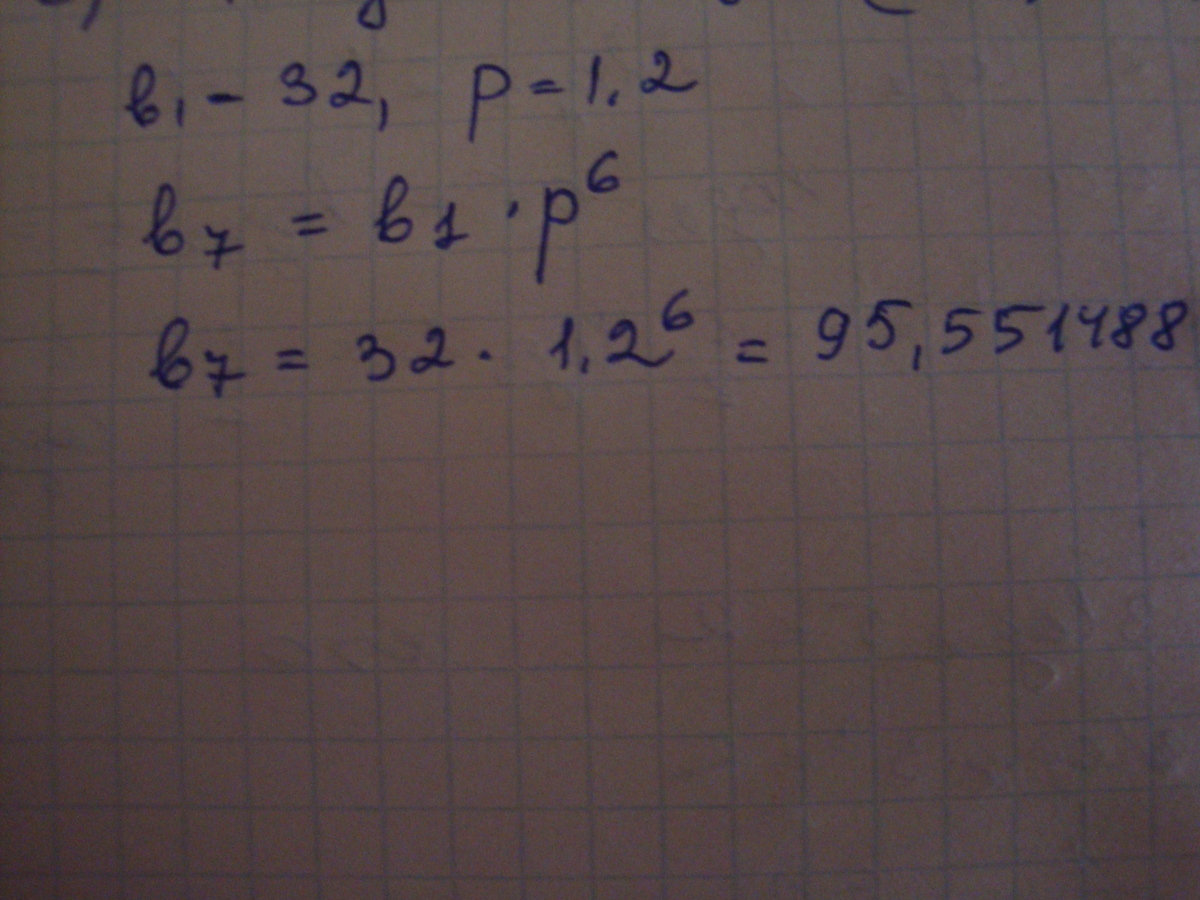 в₁ - 32, p = 1.2
в₇ = в₁ · p⁶
в₇ = 32 · 1.2⁶ = 95,551488